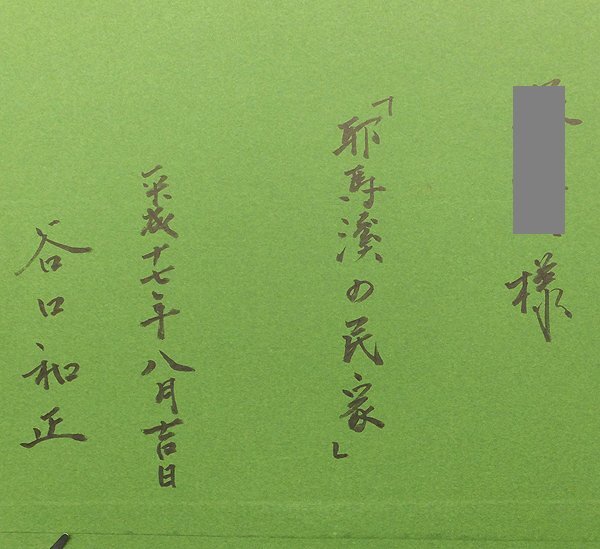 様
「耶馬溪の民家」
平成十七年八月吉日
谷口和正